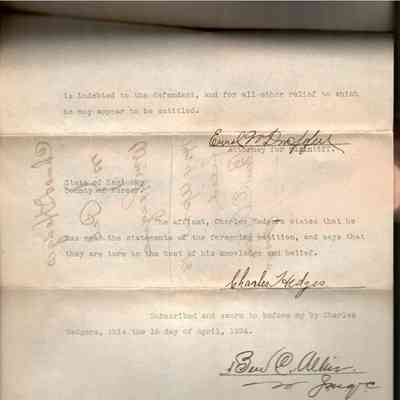 is indebted to the defendant, and for all other relief to which
he may appear to be entitled.
Attorney for Plaintiff.
State of Kentucky
County of Mercer.
The affiant, Charles Hedgers states that he
has read the statements of the foregoing petition, and says that
they are ture to the best of his knowledge and belief.
Charles Hedges
Subscribed and sworn to before my by Charles
Hedgers, this the 16 day of April, 1934.
Ben C. Allin